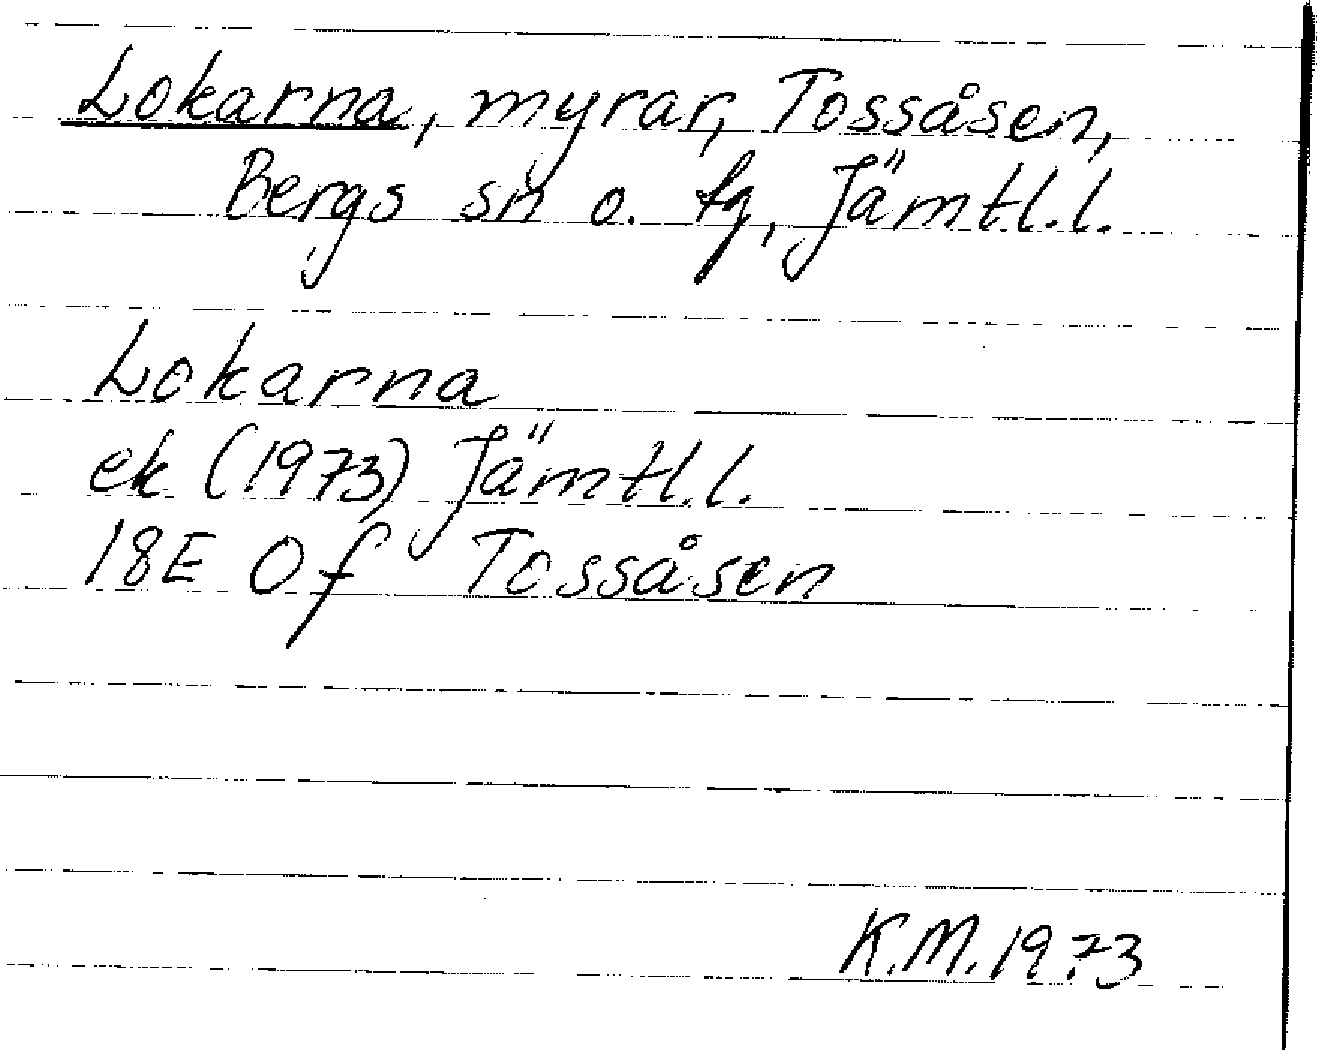 Lokarna, myrar, Tossåsen,
Bergs sn o. tg, Jämtl.l.
Lokarna
ek (1973) Jämtl.l.
18E 0f Tossåsen
K.M. 1973